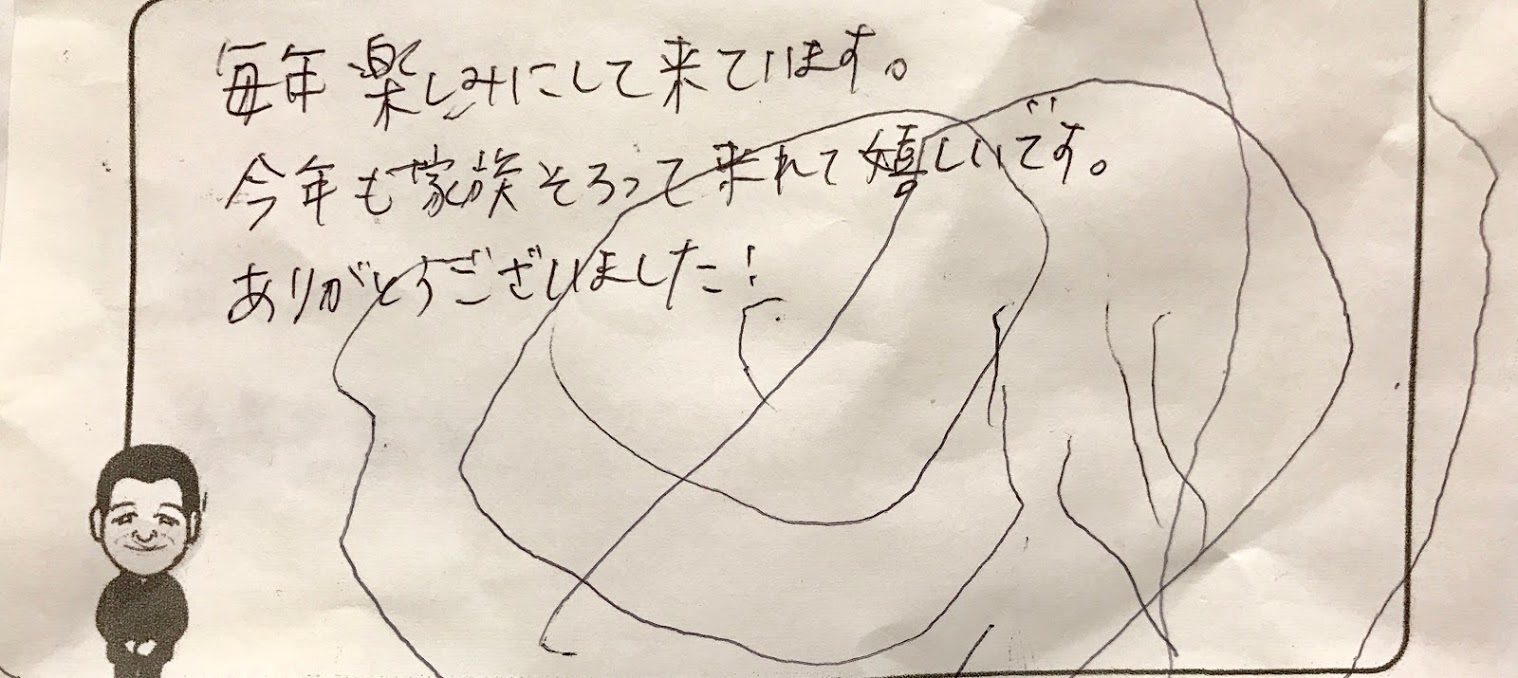 毎年楽しみにして来ています。
今年も家族そろって来れて嬉しいです。
ありがとうございました!